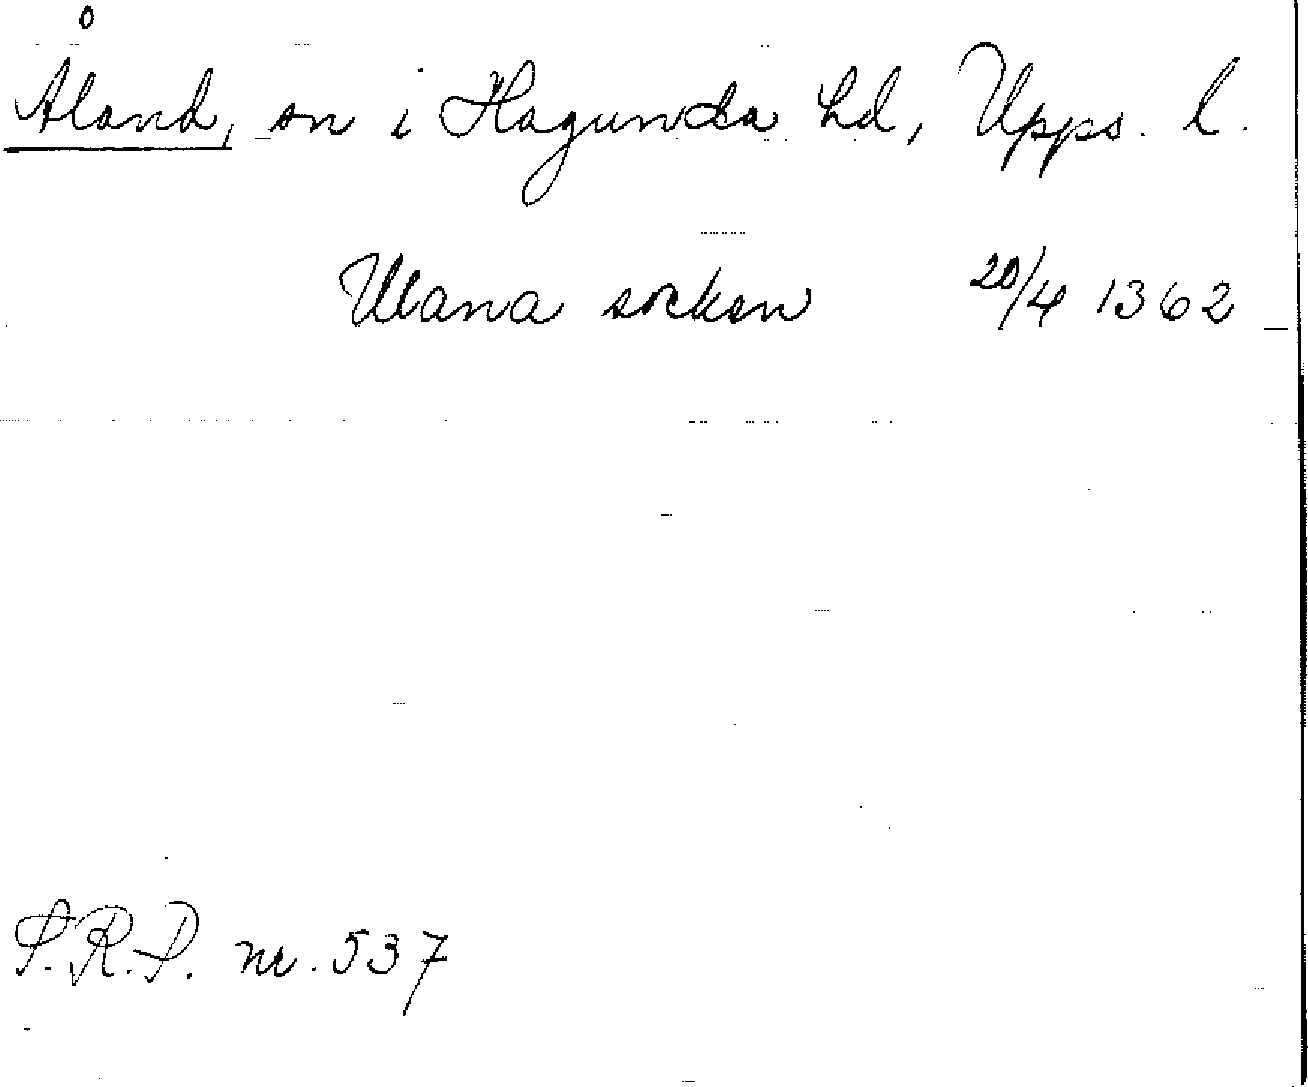 Åland, sn i Hagunda hd, Upps. l.
Ulana socken 20/4 1362
S.R.P. nr. 537